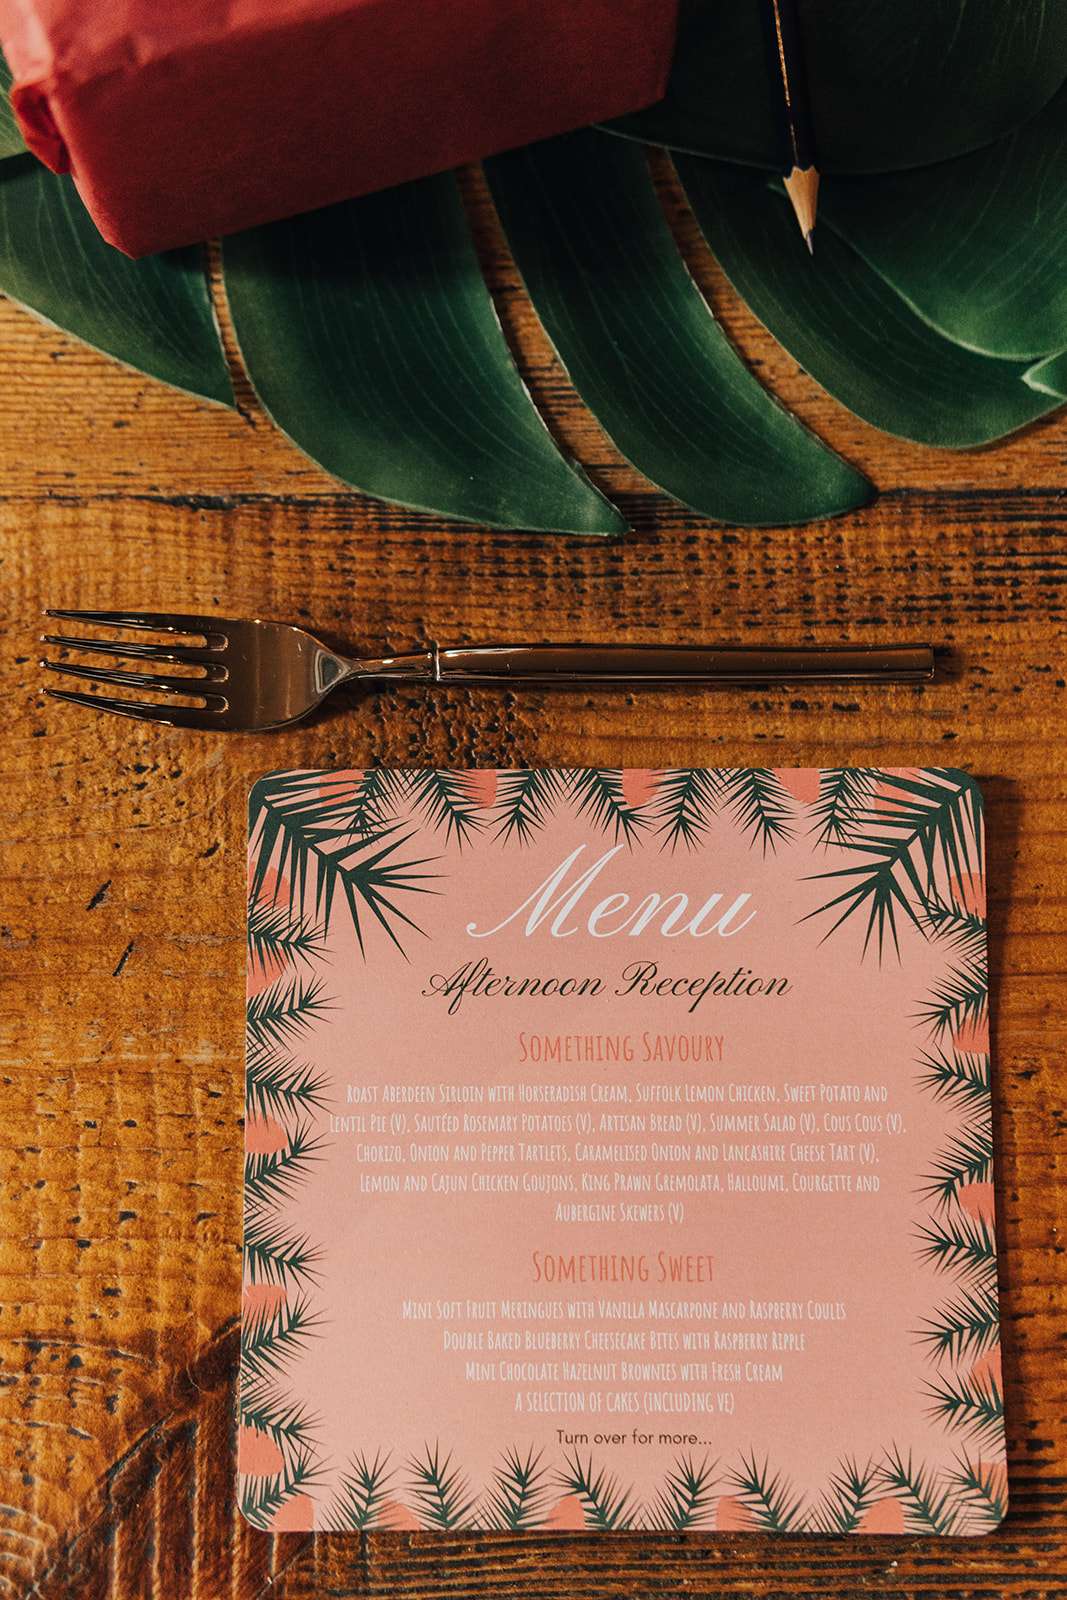 Menu
Afternoon Reception
Something Savoury
Roast Aberdeen Sirloin with Horseradish Cream, Suffolk Lemon Chicken, Sweet Potato and
Lentil Pie (V), Sautéed Rosemary Potatoes (V), Artisan Bread (V), Summer Salad (V), Cous Cous (V),
Chorizo, Onion and Pepper Tartlets, Caramelised Onion and Lancashire Cheese Tart (V),
Lemon and Cajun Chicken Goujons, King Prawn Gremolata, Halloumi, Courgette and
Aubergine Skewers (V)
Something Sweet
Mini Soft Fruit Meringues with Vanilla Mascarpone and Raspberry Coulis
Double Baked Blueberry Cheesecake Bites with Raspberry Ripple
Mini Chocolate Hazelnut Brownies with Fresh Cream
A SELECTION OF CAKES (INCLUDING VE)
Turn over for more...